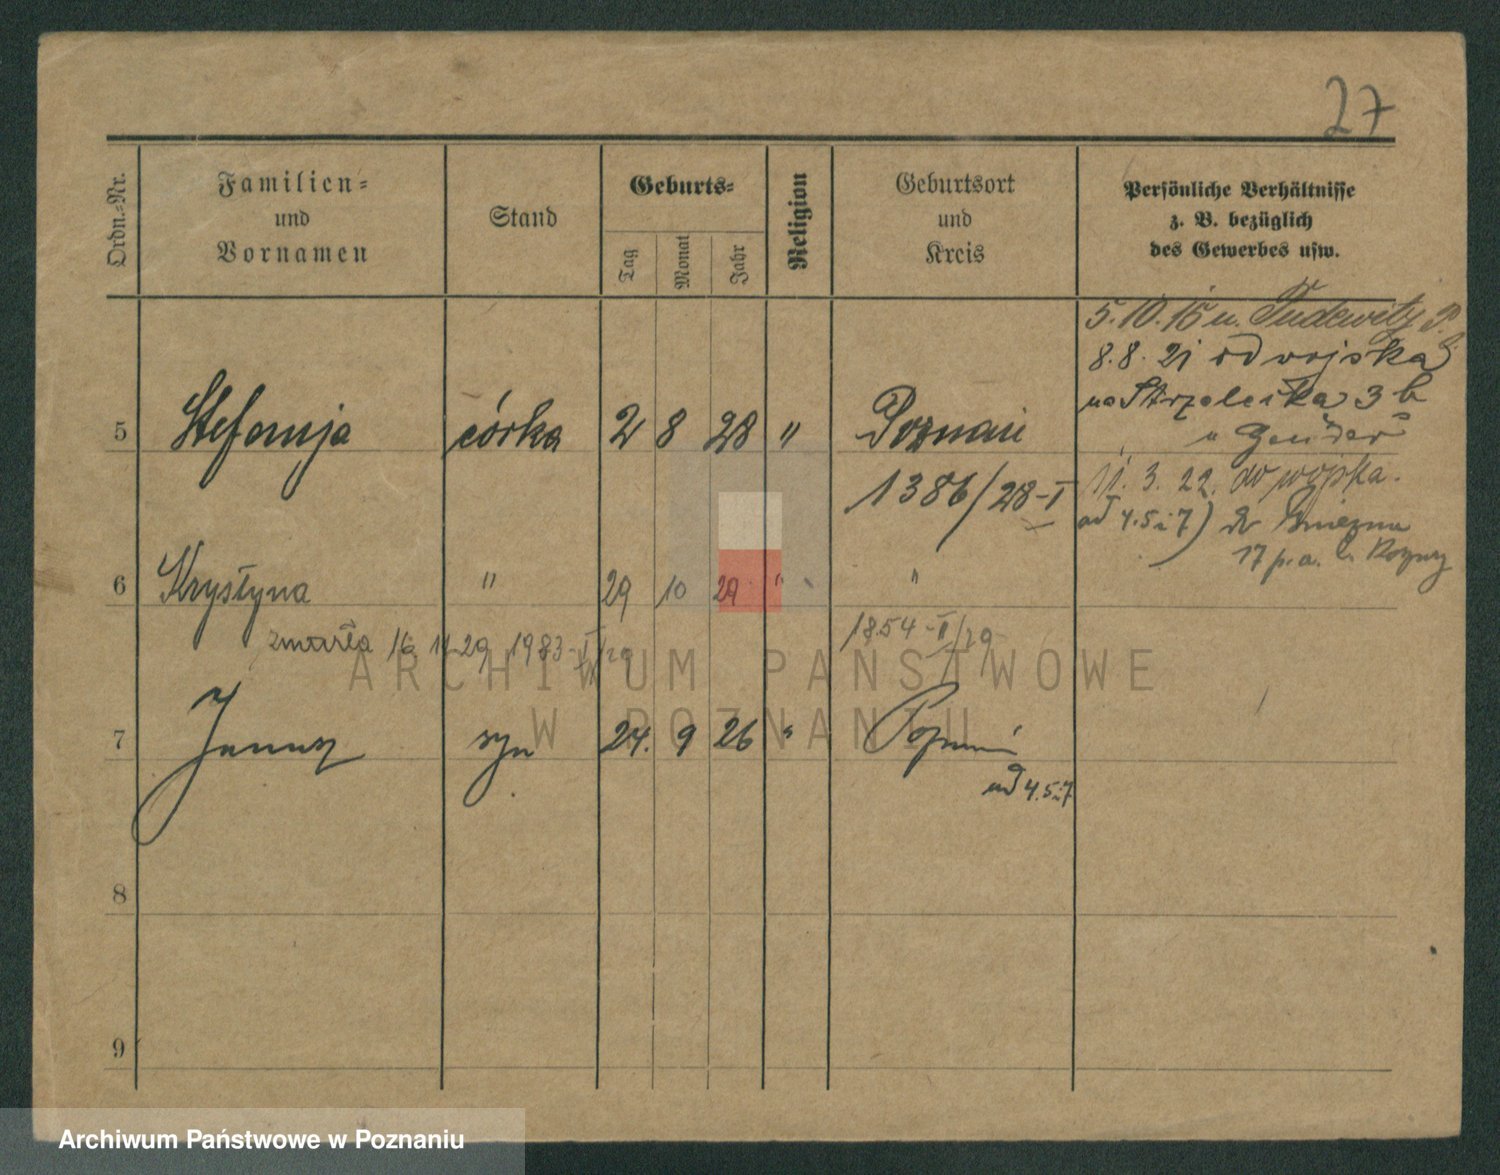 27
Ordn.-Nr.
Familien-
und
Vornamen
Stand
Geburts-
Tag
Monat
Jahr
Religion
Geburtsort
und
Kreis
Persönliche Verhältnisse
z. B. bezüglich
des Gewerbes usw.
5.10.15 n. Pudewitz
8.8.21 od wojska
na Strzelecka 3 b
5 Stefanja córka 2 8 28 " Poznań
11.3.22. do wojska.
1386/28-I
ad 4.5i7) do Gniezna
17 p.a.
6 Krystyna " 29 10 29 " "
zmarła 16 11 29 1983-II/29
1854-II/29
7 Janusz syn 24. 9 26 " Poznań
ad 4.5i7
8
9
ARCHIWUM PAŃSTWOWE
W POZNANIU
Archiwum Państwowe w Poznaniu